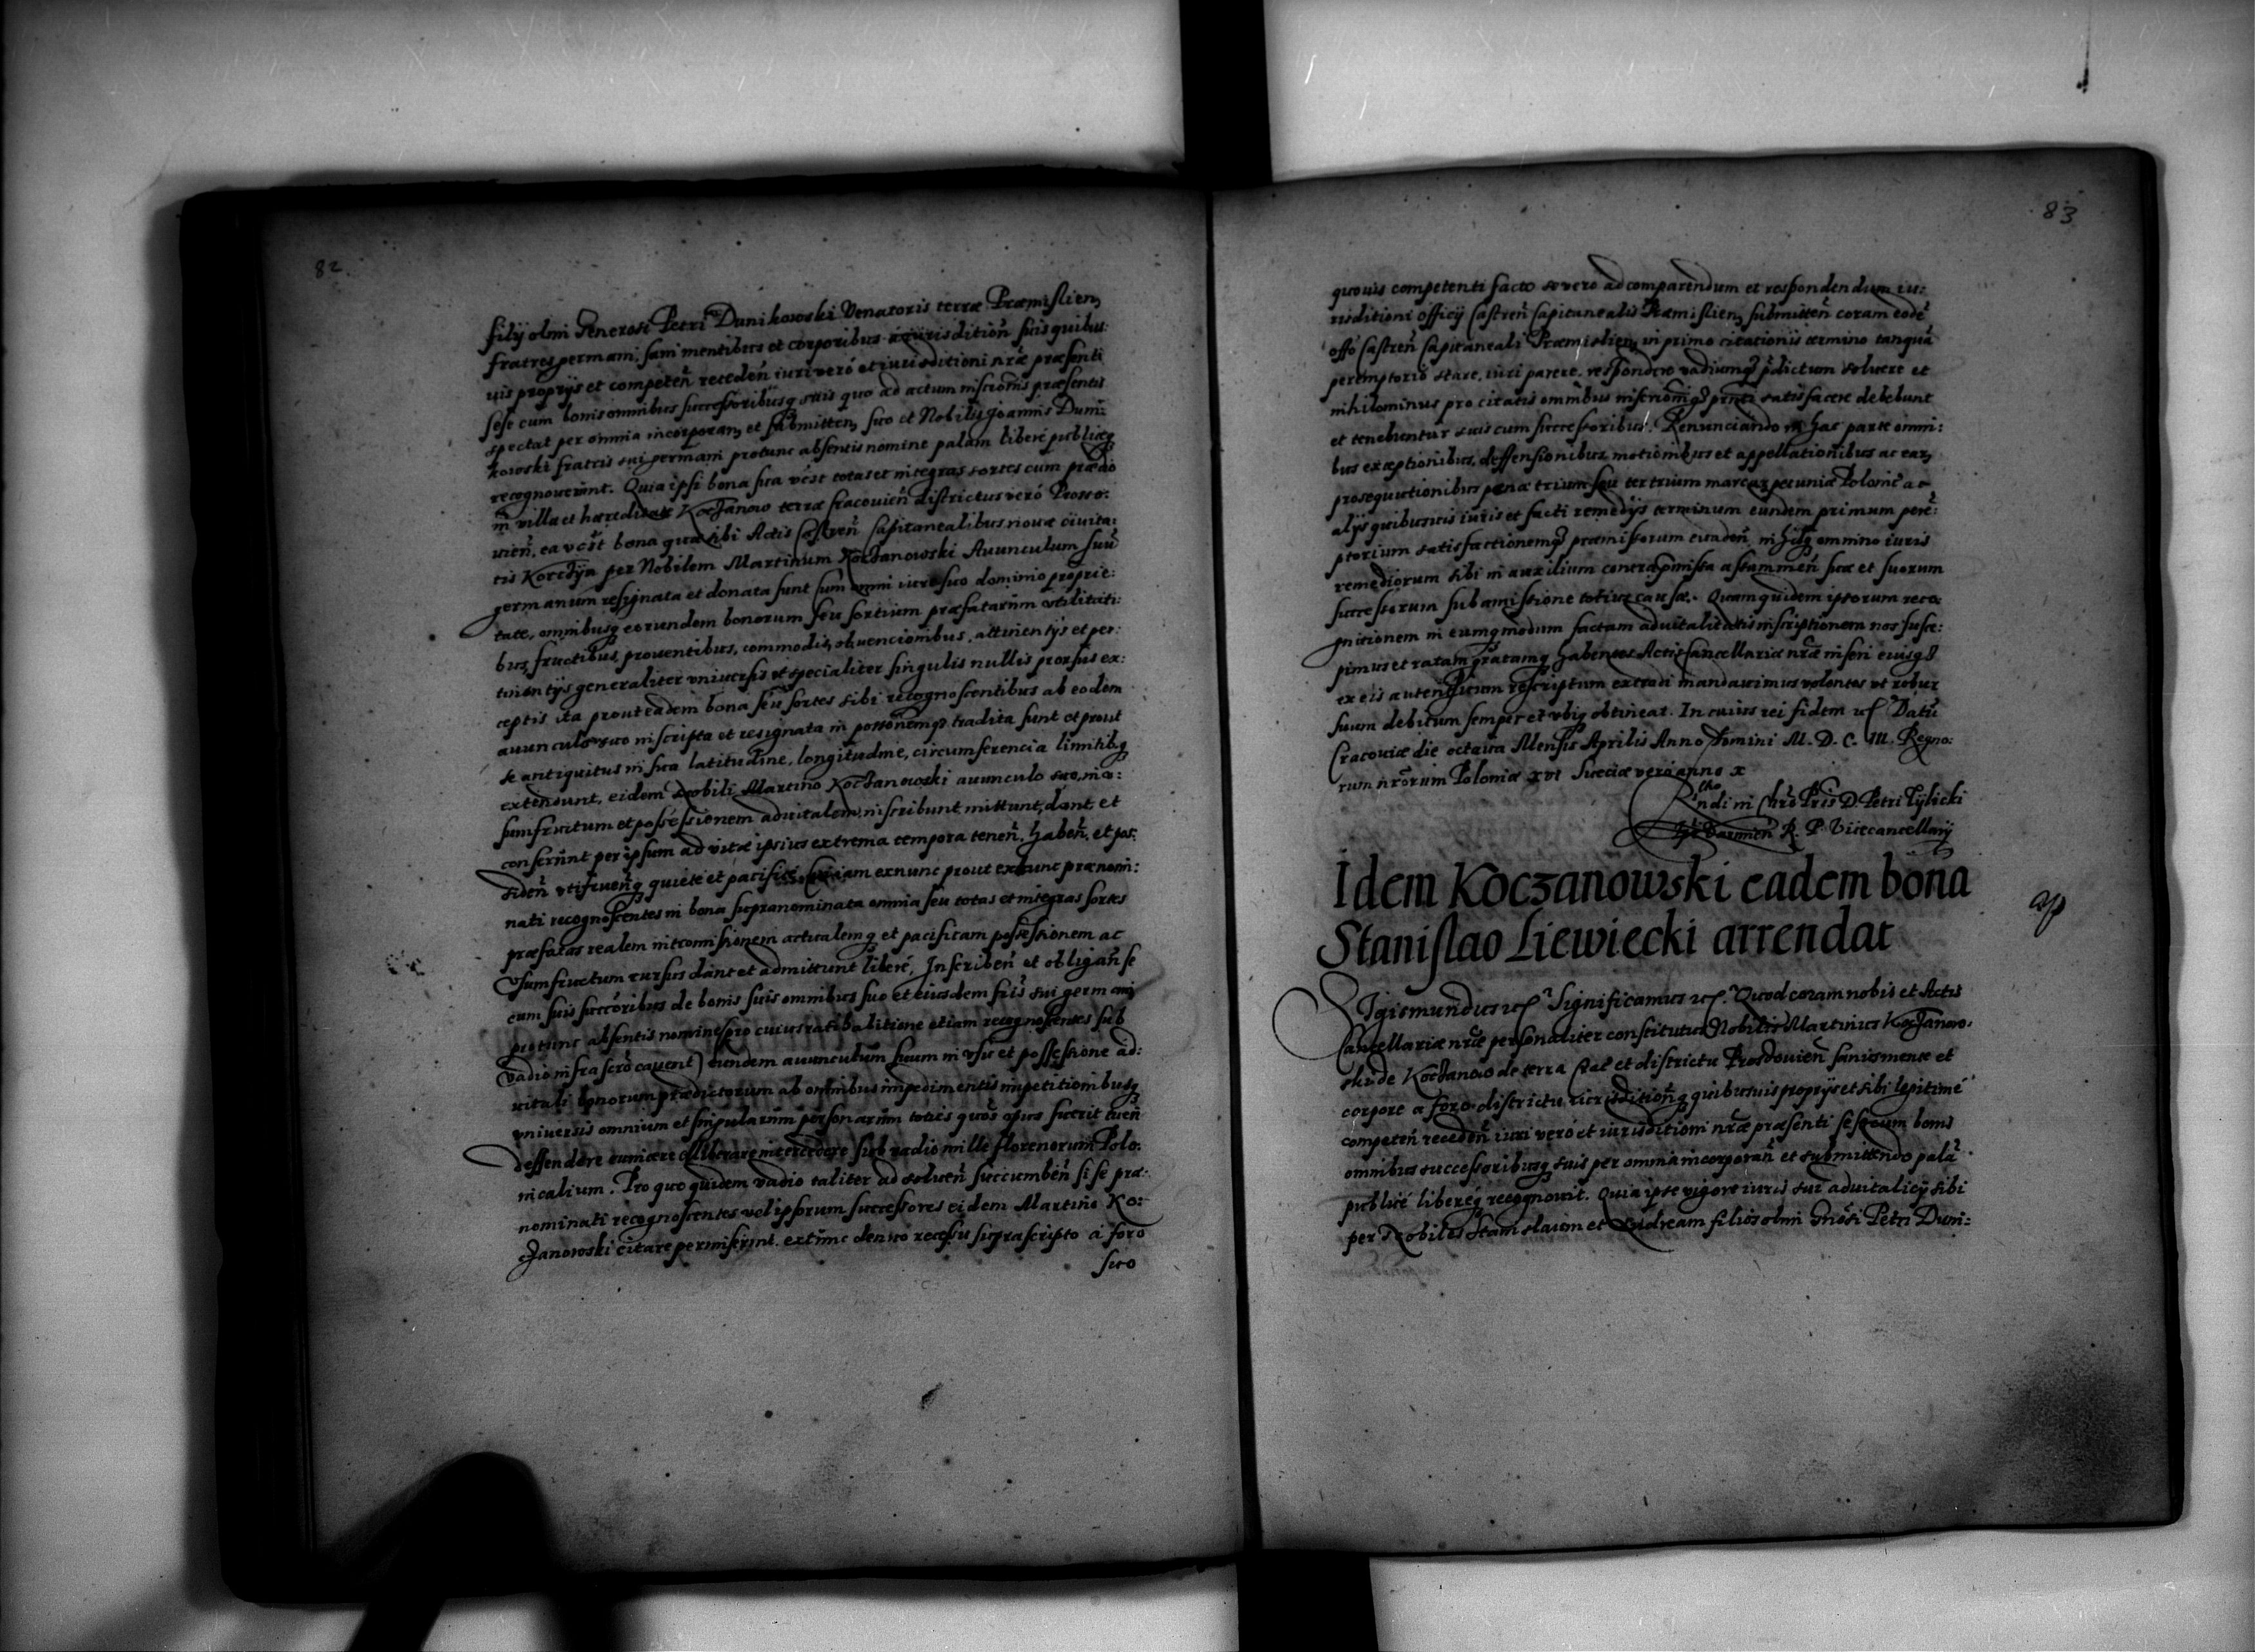 82
filij olim Generosi Petri Dunikowski Venatoris terræ Præmislien,
fratres germani, sani mentibus et corporibus a iurisdition suis quibus:
uis proprijs et competeñ recedeñ iuri veró et iurisditioni nr̃æ præsenti
sese cum bonis omnibus successoribusq suis quo ad actum inscrionis præsentis
spectat per omnia incorporan, et submitten, suo et Nobilij Joannis Duni:
kowski fratris sui germani protunc absentis nomine palam liberé publiceq
recognouerunt. Quia ipsi bona sua vc̃st totas et integras sortes cum prædio
in villa et hæreditate Koczanow terræ Cracouieñ districtus veró Prosso:
uieñ, ea vc̃st bona quæ sibi Actis Castreñ Capitanealibus nouæ ciuita:
tis Korczyn per Nobilem Martinum Koczanowski Auunculum suũ
germanum resignata et donata sunt cum omni iure suo dominio proprie:
tate, omnibusq eorundem bonorum seu sortium præfatarum vtilitati:
bus, fructibus, prouentibus, commodis, obuencionibus, attinentijs et per:
tinentijs generaliter vniuersis et specialiter singulis nullis prorsus ex:
ceptis ita prout eadem bona seu sortes sibi recognoscentibus ab eodem
auunculo suo inscripta et resignata in possonemq tradita sunt et prout
se antiquitus in sua latitudine, longitudine, circumferencia limitibq
extendunt, eidem Nobili Martino Koczanowski auunculo suo, in v:
sumfructum et possessionem aduitalem, inscribunt mittunt, dant, et
conferunt per ipsum ad vitæ ipsius extrema tempora teneñ, habeñ, et pos:
sideñ vtifrueñq quieté et pacificé, iam exnunc prout extunc prænomi:
nati recognoscentes in bona supranominata omnia seu totas et integras sortes
præfatas realem intromissionem actualemq et pacificam possessionem ac
Vsumfructum rursus dant et admittunt liberé, Inscribeñ et obligañ se
cum suis succoribus de bonis suis omnibus suo et eiusdem fr̃is sui germani
protunc absentis nomine (pro cuius ratihabitione etiam recognoscentes sub
vadio infra scro cauent) eundem auunculum suum in vsu et possessione ad:
uitali bonorum prædictorum ab omnibus impedimentis impetitionibusq
vniuersis omnium et singularum personarum toties quõs opus fuerit tueri
deffendere euincere intercedere sub vadio mille florenorum Polo:
nicalium. Pro quo quidem vadio taliter ad solueñ succumbeñ si se præ:
nominati recognoscentes vel ipsorum successores eidem Martino Ko:
czanowski citare permiserint. extunc denuo recessu suprascripto à foro
suo
83
quouis competenti facto se vero ad comparendum et respondendum iu:
risditioni officij Castreñ Capitanealis Præmislien, submitteñ coram eodẽ
offo Castreñ Capitaneali Præmislien, in primo citationis termino tanquã
peremptorió stare, iuri parere, respondere vadiumq p̃dictum soluere et
nihilominus pro citatis omnibus inscrionisq pñti satisfacere debebunt
et tenebuntur suis cum successoribus. Renunciando in hac parte omni:
bus exceptionibus, deffensionibus, motionibus et appellationibus ac ear,
prosequutionibus pænæ trium seu ter trium marcar, pecuniæ Poloniĉ ac
alijs quibusuis iuris et facti remedijs terminum eundem primum perẽ:
ptorium satisfactionemq præmissorum euadeñ, nihilq omnino iuris
remediorum sibi in auxilium contra p̃missa assummeñ suæ et suorum
successorum sub amissione totius causæ. Quam quidem ipsorum reco:
gnitionem in eumq modum factam aduitalitatis inscriptionem nos susce:
pimus et ratam gratamq habentes Actis Cancellariæ nr̃æ inseri eiusq
ex eis autenticum rescriptum extradi mandauimus volentes vt robur
suum debitum semper et vbiq obtineat. In cuius rei fidem etc. Datũ
Cracouiæ die octaua Mensis Aprilis Anno Domini M. D. C. III. Regno:
rum nr̃orum Poloniæ xvi Sueciæ vero anno x
Rndi in Chrõ Pr̃is D. Petri Tÿlicki
R. P. Vicecancellarij
Idem Koczanowski eadem bona
Stanislao Liewiecki arrendat
Sigismundus etc. Significamus etc. Quod coram nobis et Actis
Cancellariæ nr̃æ personaliter constitutus Nobilis Martinus Koczanow:
ski de Koczanow de terra Crac̃ et districtu Prossouieñ sanus mente et
corpore a foro districtu iurisditioñq quibusuis proprijs et sibi legitimé
competeñ recedeñ iuri veró et iurisditioni nr̃æ præsenti sese cum bonis
omnibus successoribusq suis per omnia incorporañ et submittendo palã
publicé liberéq recognouit. Quia ipse vigore iuris sui aduitalicij sibi
per Nobiles Stanislaum et Andream filios olim Gñosi Petri Duni: